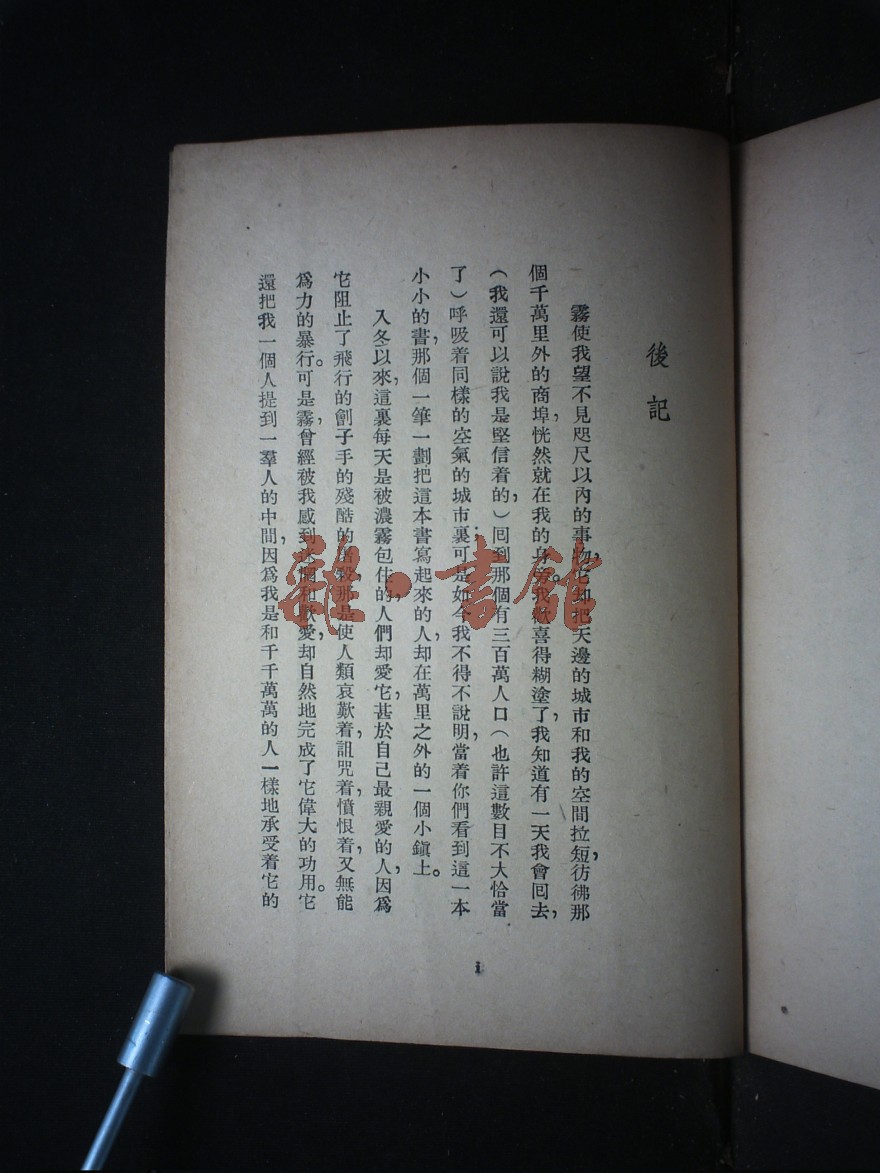 後記
霧使我望不見咫尺以內的事物，它却把天邊的城市和我的空間拉短，彷彿那
個千萬里外的商埠，恍然就在我的身旁。我歡喜得糊塗了，我知道有一天我會囘去，
（我還可以說我是堅信着的，）囘到那個有三百萬人口（也許這數目不大恰當
了）呼吸着同樣的空氣的城市裏。可是如今我不得不說明，當着你們看到這一本
小小的書，那個一筆一劃把這本書寫起來的人，却在萬里之外的一個小鎭上。
入冬以來，這裏每天是被濃霧包住的，人們却愛它，甚於自己最親愛的人，因爲
它阻止了飛行的劊子手的殘酷的屠殺，那是使人類哀歎着，詛咒着，憤恨着，又無能
爲力的暴行。可是霧，曾經被我感到和歡愛，却自然地完成了它偉大的功用。它
還把我一個人提到一羣人的中間，因爲我是和千千萬萬的人一樣地承受着它的
i
雜·書館